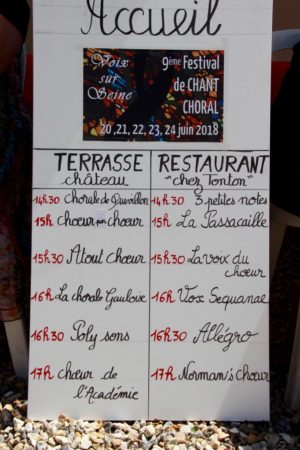 Accueil
Voix
sur
Seine
9ème Festival
de CHANT
CHORAL
20,21, 22, 23, 24 juin 2018
TERRASSE
château
14h30 Chorale de Quevillon
15h Chœur par chœur
15h30 Atout Chœur
16h La chorale Gauloise
16h30 Poly sons
17h chœur de
l'Académie
RESTAURANT
"chez Tonton"
14h30 3 petites notes
15h La Passacaille
15h30 La voix du
chœur
16h Vox Sequanae
16h30 Allégro
17h Norman's Chœur